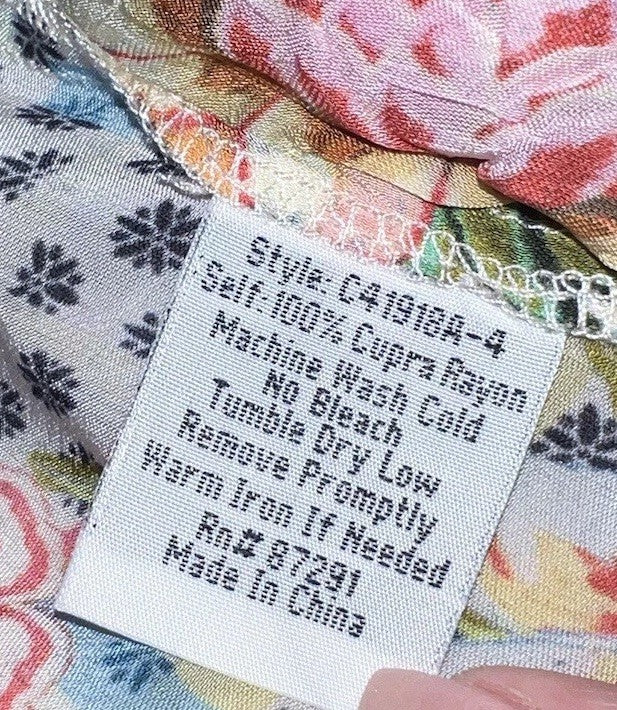 Style: C41918A-4
Self:100% Cupra Rayon
Machine Wash Cold
No Bleach
Tumble Dry Low
Remove Promptly
Warm Iron If Needed
Rn# 87291
Made In China